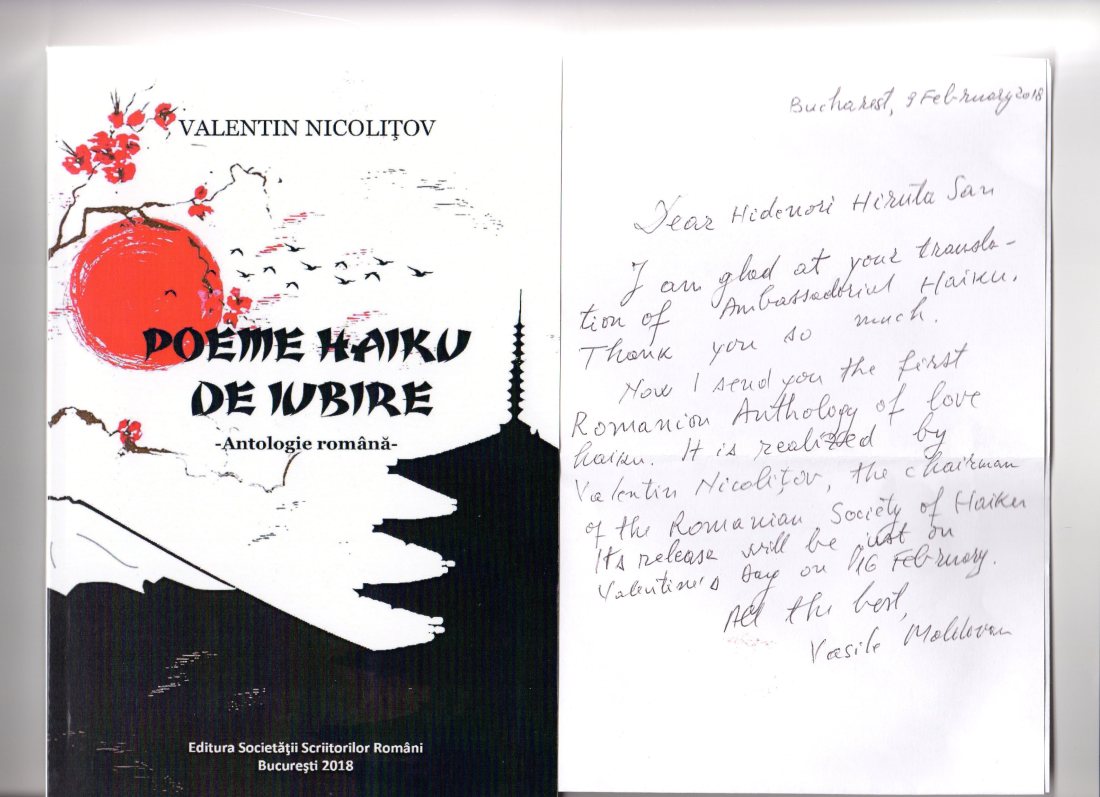 VALENTIN NICOLIŢOV
POEME HAIKU
DE IUBIRE
-Antologie română-
Editura Societăţii Scriitorilor Români
Bucureşti 2018
Bucharest, 9 February 2018
Dear Hidenori Hiruta San
I am glad at your transla-
tion of Ambassadorial Haiku.
Thank you so much.
Now I send you the first
Romanian Anthology of love
haiku. It is realized by
Valentin Nicoliţov, the chairman
of the Romanian Society of Haiku
Its release will be just on
Valentine's Day on 16 February.
All the best,
Vasile Moldovan